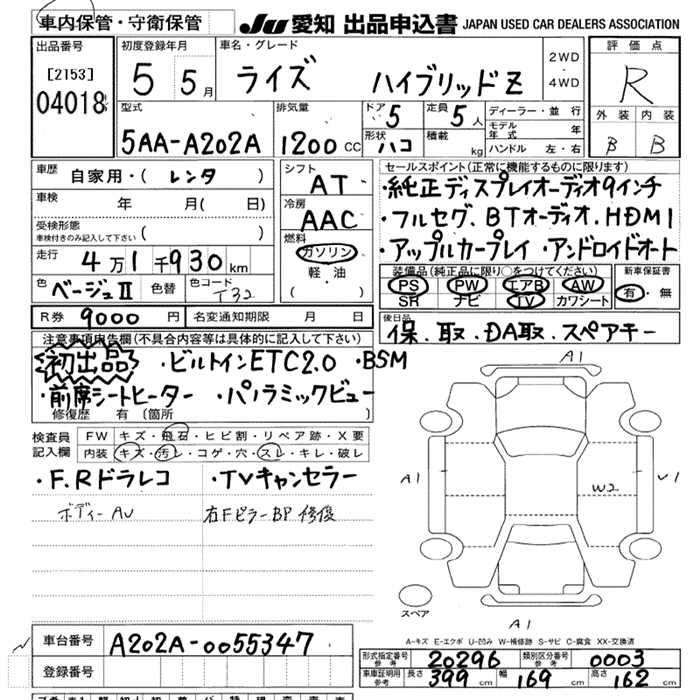 車内保管・守衛保管 JU 愛知 出品申込書 JAPAN USED CAR DEALERS ASSOCIATION
出品番号 初度登録年月 車名・グレード 評価点
[2153] 5 5月 ライズ ハイブリッドZ 2WD・4WD R
04018
型式 排気量 ドア 5 定員 5人 ディーラー・並行 外装 内装
5AA-A202A 1200cc 形状 ハコ 積載 kg モデル年式 年 B B
ハンドル 左・右
車歴 自家用・(レンタ) シフト AT セールスポイント(正常に機能するものに限ります)
車検 年 月(日) 冷房 AAC ・純正ディスプレイオーディオ9インチ
受検形態 ( ) ・フルセグ.BTオーディオ.HDMI
車検付きのみ記入して下さい 燃料 ・アップルカープレイ・アンドロイドオート
走行 4万1千930km ガソリン 装備品(純正品に限り○をつけてください) 新車保証書
軽・油 PS PW エアB AW 有・無
色 ベージュII 色替 色コード T32 SR ナビ TV カワシート
R券 9000円 名変通知期限 月 日 後日品
注意事項申告欄(不具合内容等は具体的に記入して下さい) 保.取.DA取.スペアキー
初出品 ・ビルトインETC2.0 ・BSM
・前席シートヒーター ・パノラミックビュー
修復歴 有 〔箇所
検査員 FW キズ・飛石・ヒビ割・リペア跡・X要
記入欄 内装 キズ・汚レ・コゲ・穴・スレ・キレ・破レ
・F.Rドラレコ ・TVキャンセラー
ボディーAU 右FピラーBP修復
A1
A1 W2 U1
スペア A1
A-キズ E-エクボ U-凹み W-補修跡 S-サビ C-腐食 XX-交換済
車台番号 A202A-0055347
登録番号
形式指定番号 参考 20296 類別区分番号 参考 0003
車庫証明用 参考 長さ 399cm 幅 169cm 高さ 162cm